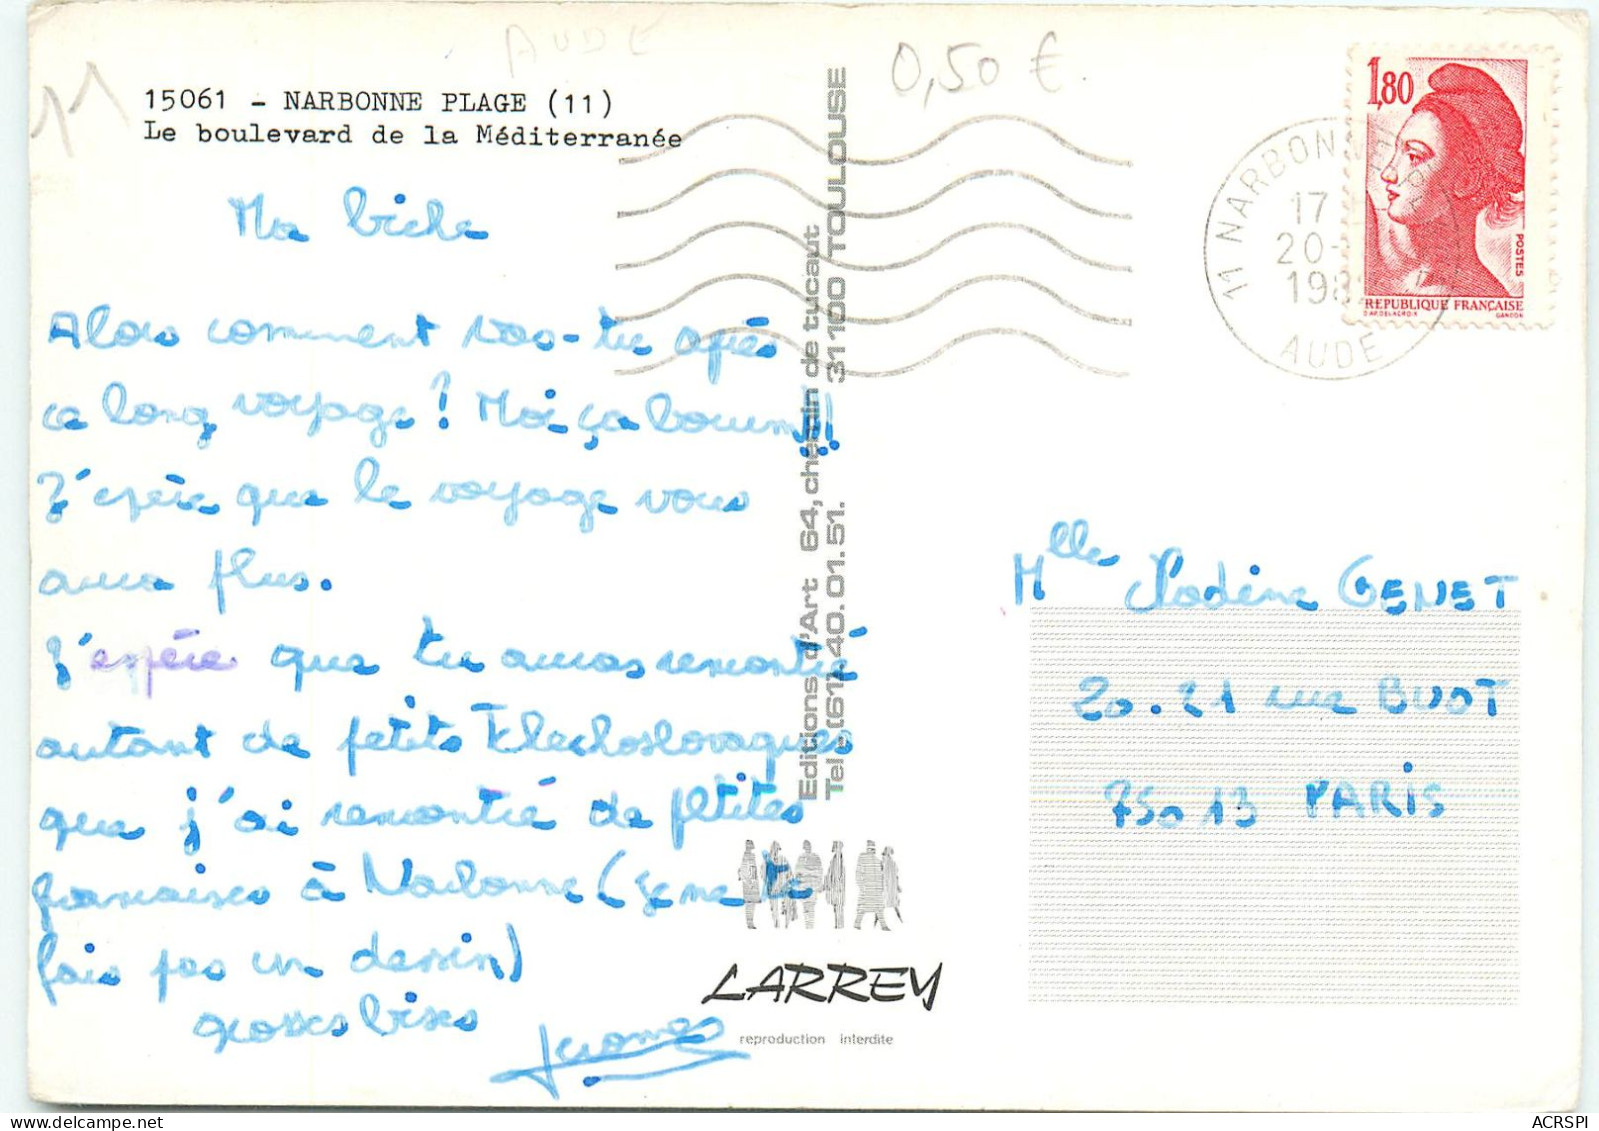 AUDE
11
0,50 €
15061 - NARBONNE PLAGE (11)
Le boulevard de la Méditerranée
Ma biche
Alors comment vas-tu après
ce long voyage? Moi ça boum!!
J'espère que le voyage vous
aura plus.
J'espère que tu auras rencontré
autant de petits Tchechoslovaques
que j'ai rencontré de petites
francaises à Narbonne (je ne te
fais pas un dessin)
grosses bises
Jerome
Editions d'Art 64, chemin de tucaut
Tel.(61) 40.01.51. 31100 TOULOUSE
LARREY
reproduction interdite
1,80
POSTES
REPUBLIQUE FRANÇAISE
D'AP. DELACROIX GANDON
11 NARBON
17
20-
198
AUDE
Mlle Nadine GENET
20.21 rue BUOT
75013 PARIS
delcampe.net
ACRSPI